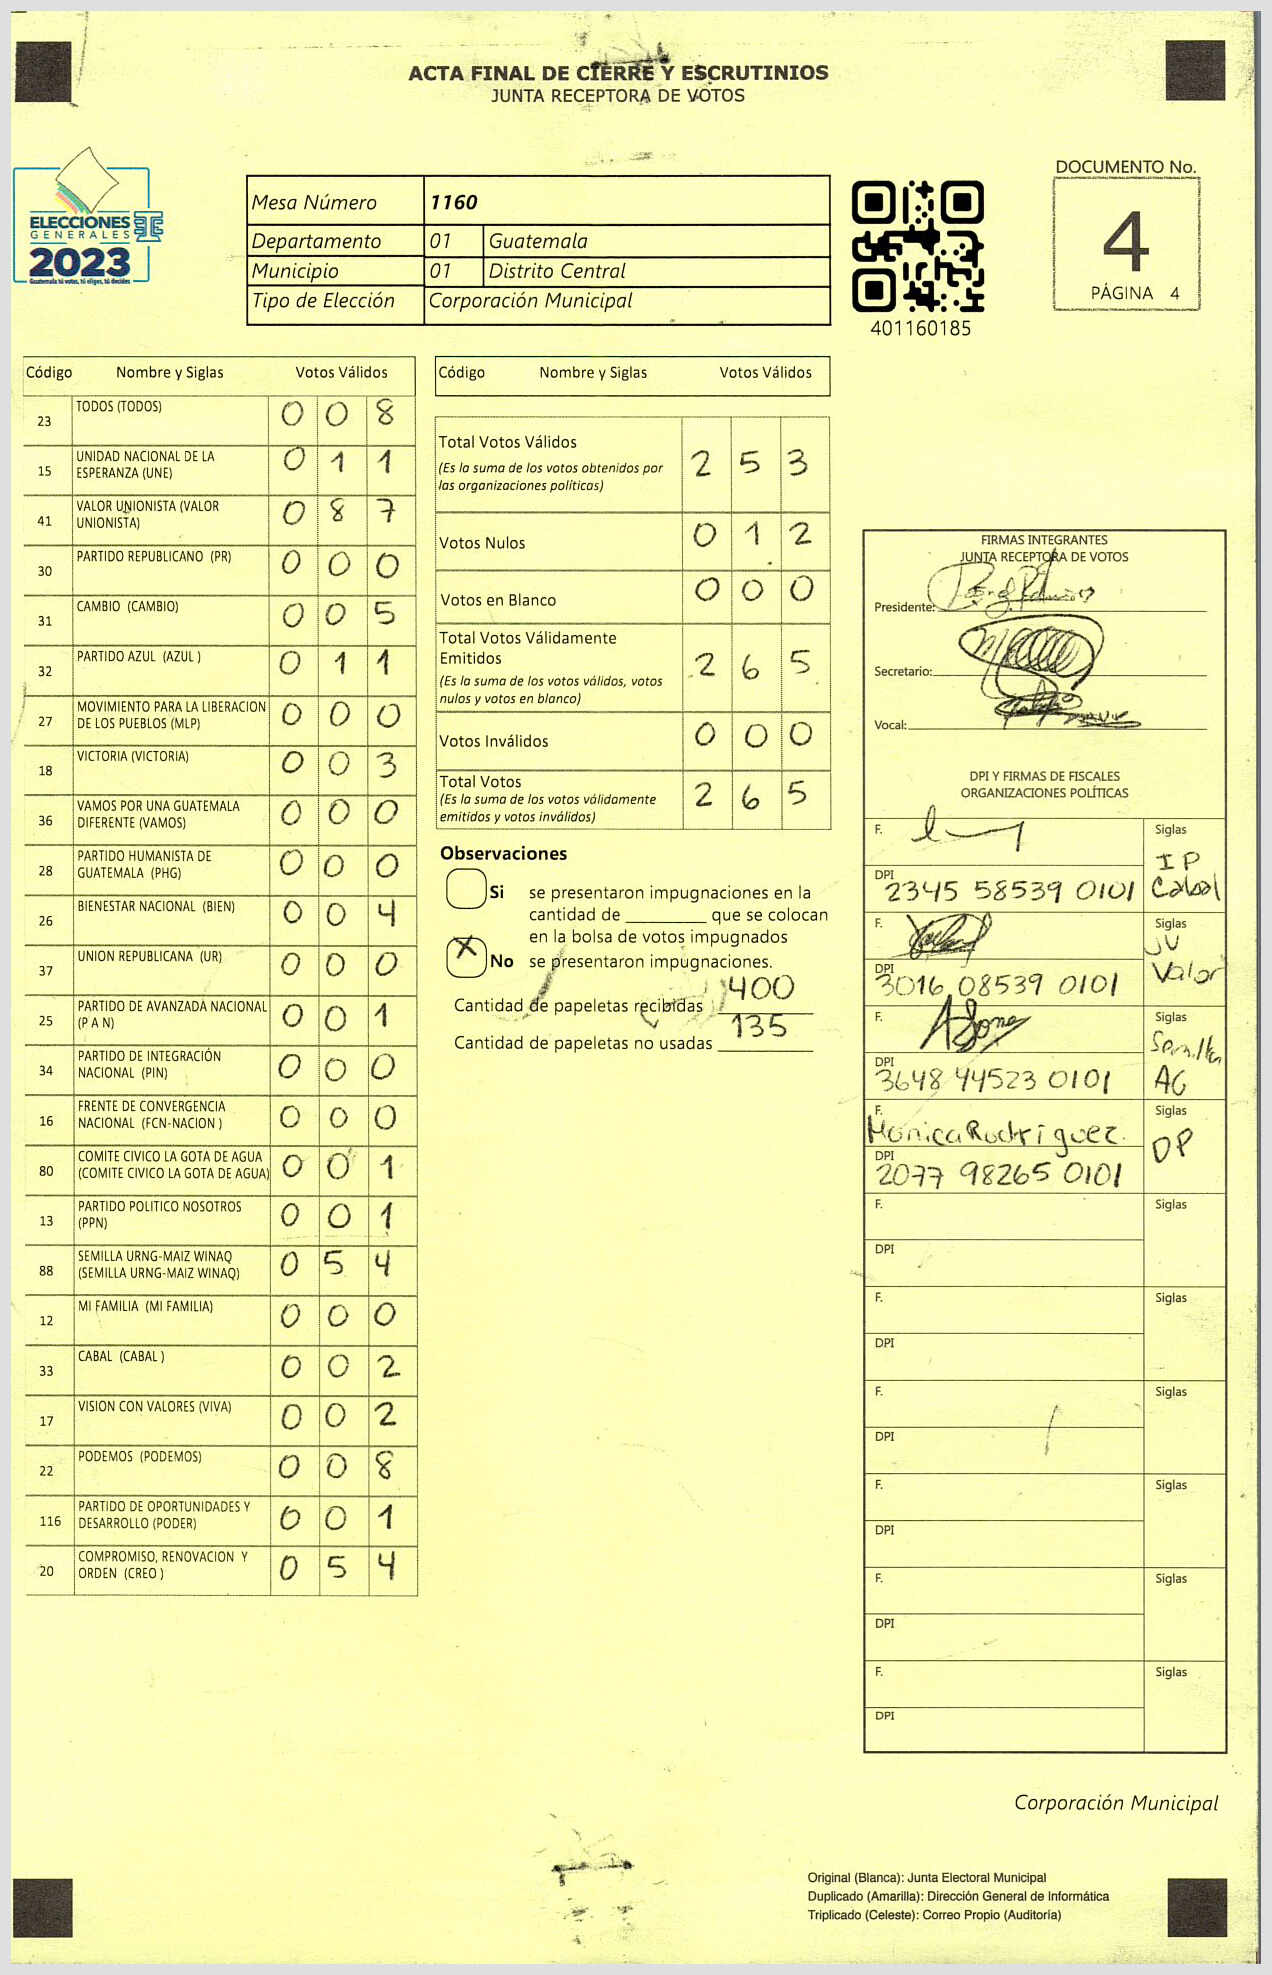 ACTA FINAL DE CIERRE Y ESCRUTINIOS
JUNTA RECEPTORA DE VOTOS
ELECCIONES
GENERALES
2023
Guatemala tú votas, tú eliges, tú decides
Mesa Número 1160
Departamento 01 Guatemala
Municipio 01 Distrito Central
Tipo de Elección Corporación Municipal
401160185
DOCUMENTO No.
4
PÁGINA 4
Código Nombre y Siglas Votos Válidos
23 TODOS (TODOS) 0 0 8
15 UNIDAD NACIONAL DE LA ESPERANZA (UNE) 0 1 1
41 VALOR UNIONISTA (VALOR UNIONISTA) 0 8 7
30 PARTIDO REPUBLICANO (PR) 0 0 0
31 CAMBIO (CAMBIO) 0 0 5
32 PARTIDO AZUL (AZUL ) 0 1 1
27 MOVIMIENTO PARA LA LIBERACION DE LOS PUEBLOS (MLP) 0 0 0
18 VICTORIA (VICTORIA) 0 0 3
36 VAMOS POR UNA GUATEMALA DIFERENTE (VAMOS) 0 0 0
28 PARTIDO HUMANISTA DE GUATEMALA (PHG) 0 0 0
26 BIENESTAR NACIONAL (BIEN) 0 0 4
37 UNION REPUBLICANA (UR) 0 0 0
25 PARTIDO DE AVANZADA NACIONAL (P A N) 0 0 1
34 PARTIDO DE INTEGRACIÓN NACIONAL (PIN) 0 0 0
16 FRENTE DE CONVERGENCIA NACIONAL (FCN-NACION ) 0 0 0
80 COMITE CIVICO LA GOTA DE AGUA (COMITE CIVICO LA GOTA DE AGUA) 0 0 1
13 PARTIDO POLITICO NOSOTROS (PPN) 0 0 1
88 SEMILLA URNG-MAIZ WINAQ (SEMILLA URNG-MAIZ WINAQ) 0 5 4
12 MI FAMILIA (MI FAMILIA) 0 0 0
33 CABAL (CABAL ) 0 0 2
17 VISION CON VALORES (VIVA) 0 0 2
22 PODEMOS (PODEMOS) 0 0 8
116 PARTIDO DE OPORTUNIDADES Y DESARROLLO (PODER) 0 0 1
20 COMPROMISO, RENOVACION Y ORDEN (CREO ) 0 5 4
Código Nombre y Siglas Votos Válidos
Total Votos Válidos 2 5 3
(Es la suma de los votos obtenidos por
las organizaciones políticas)
Votos Nulos 0 1 2
Votos en Blanco 0 0 0
Total Votos Válidamente
Emitidos 2 6 5
(Es la suma de los votos válidos, votos
nulos y votos en blanco)
Votos Inválidos 0 0 0
Total Votos 2 6 5
(Es la suma de los votos válidamente
emitidos y votos inválidos)
Observaciones
Si se presentaron impugnaciones en la
cantidad de ________ que se colocan
en la bolsa de votos impugnados
X No se presentaron impugnaciones.
Cantidad de papeletas recibidas 400
Cantidad de papeletas no usadas 135
FIRMAS INTEGRANTES
JUNTA RECEPTORA DE VOTOS
Presidente:
Secretario:
Vocal:
DPI Y FIRMAS DE FISCALES
ORGANIZACIONES POLÍTICAS
F. Siglas
IP
Cabal
DPI 2345 58539 0101
F. Siglas
JV
Valor
DPI 3016 08539 0101
F. Siglas
Semilla
AG
DPI 3648 44523 0101
F. Monica Rodriguez. Siglas
DP
DPI 2077 98265 0101
F. Siglas
DPI
F. Siglas
DPI
F. Siglas
DPI
F. Siglas
DPI
F. Siglas
DPI
F. Siglas
DPI
Corporación Municipal
Original (Blanca): Junta Electoral Municipal
Duplicado (Amarilla): Dirección General de Informática
Triplicado (Celeste): Correo Propio (Auditoría)